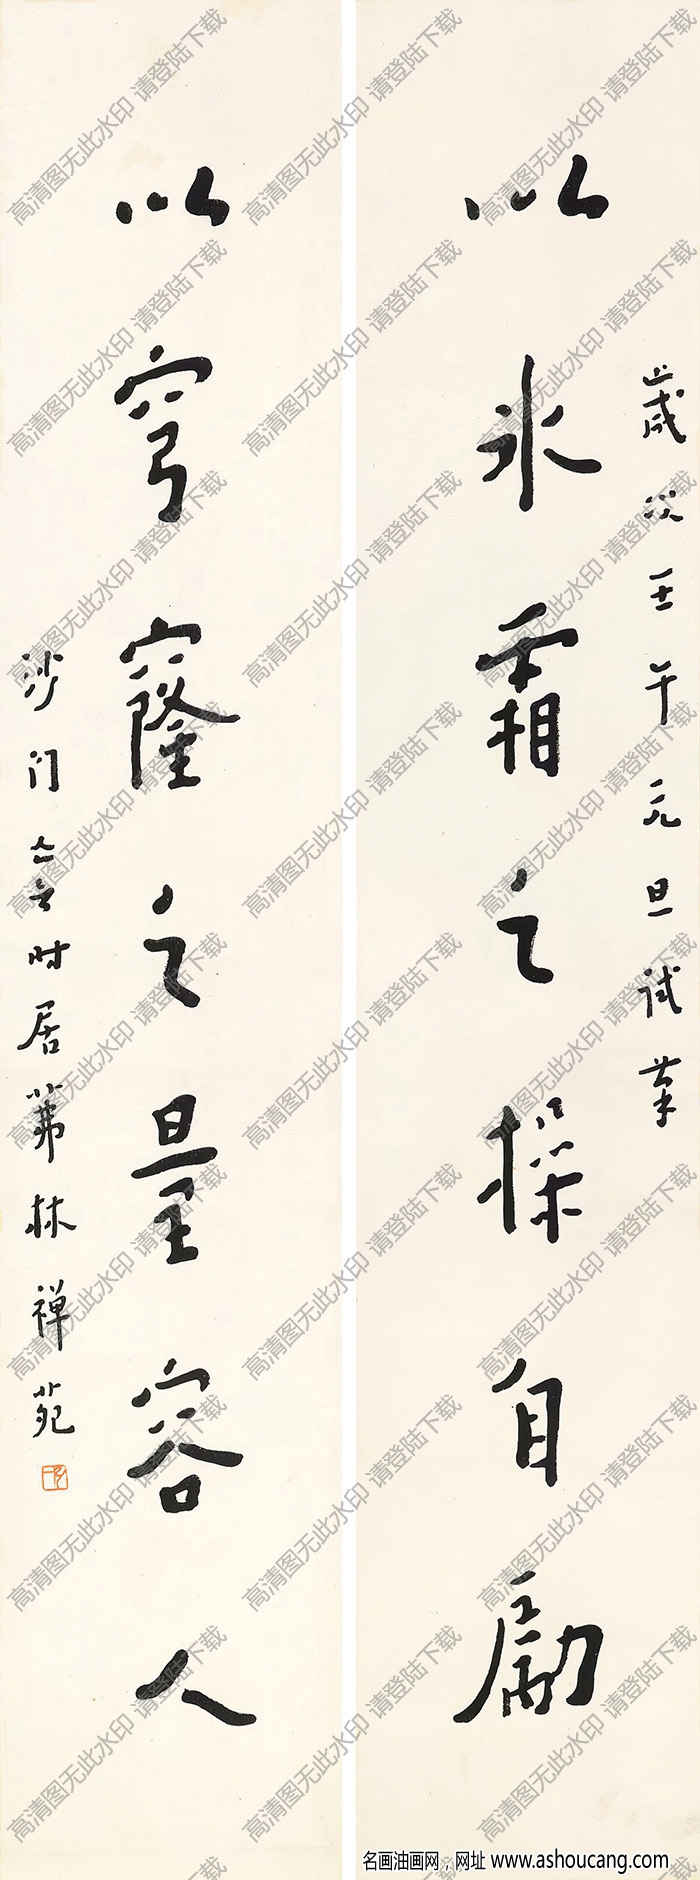 歲次壬午元旦試筆
以冰霜之操自勵
以穹窿之量容人
沙門亡言時居茀林禪苑
高清图无此水印 请登陆下载
名画油画网，网址 www.ashoucang.com